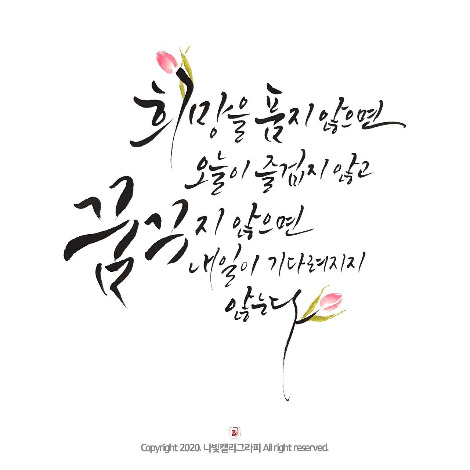 희망을 품지 않으면
오늘이 즐겁지 않고
꿈꾸지 않으면
내일이 기다려지지
않는다
Copyright 2020. 나빛캘리그라피 All right reserved.